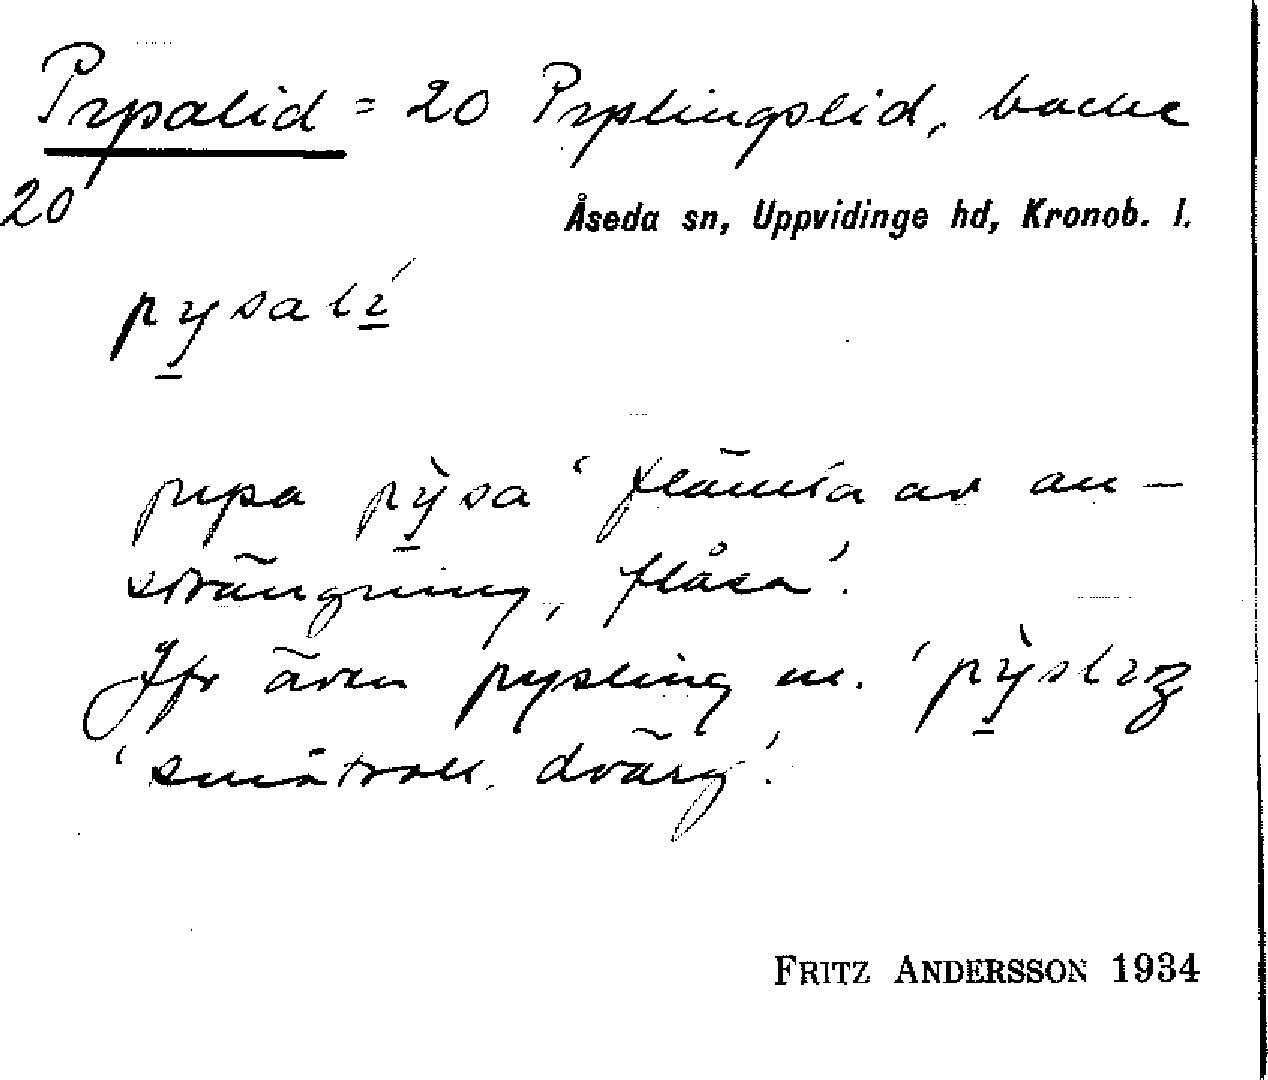 Pysalid = 20 Pyslingslid, backe
20
Åseda sn, Uppvidinge hd, Kronob. l.
pysalí
pysa pỳsa ‘flämta av an-
strängning, flåsa’.
Jfr även pysling m. ‘pỳsliŋ
‘småtroll, dvärg’.
FRITZ ANDERSSON 1934